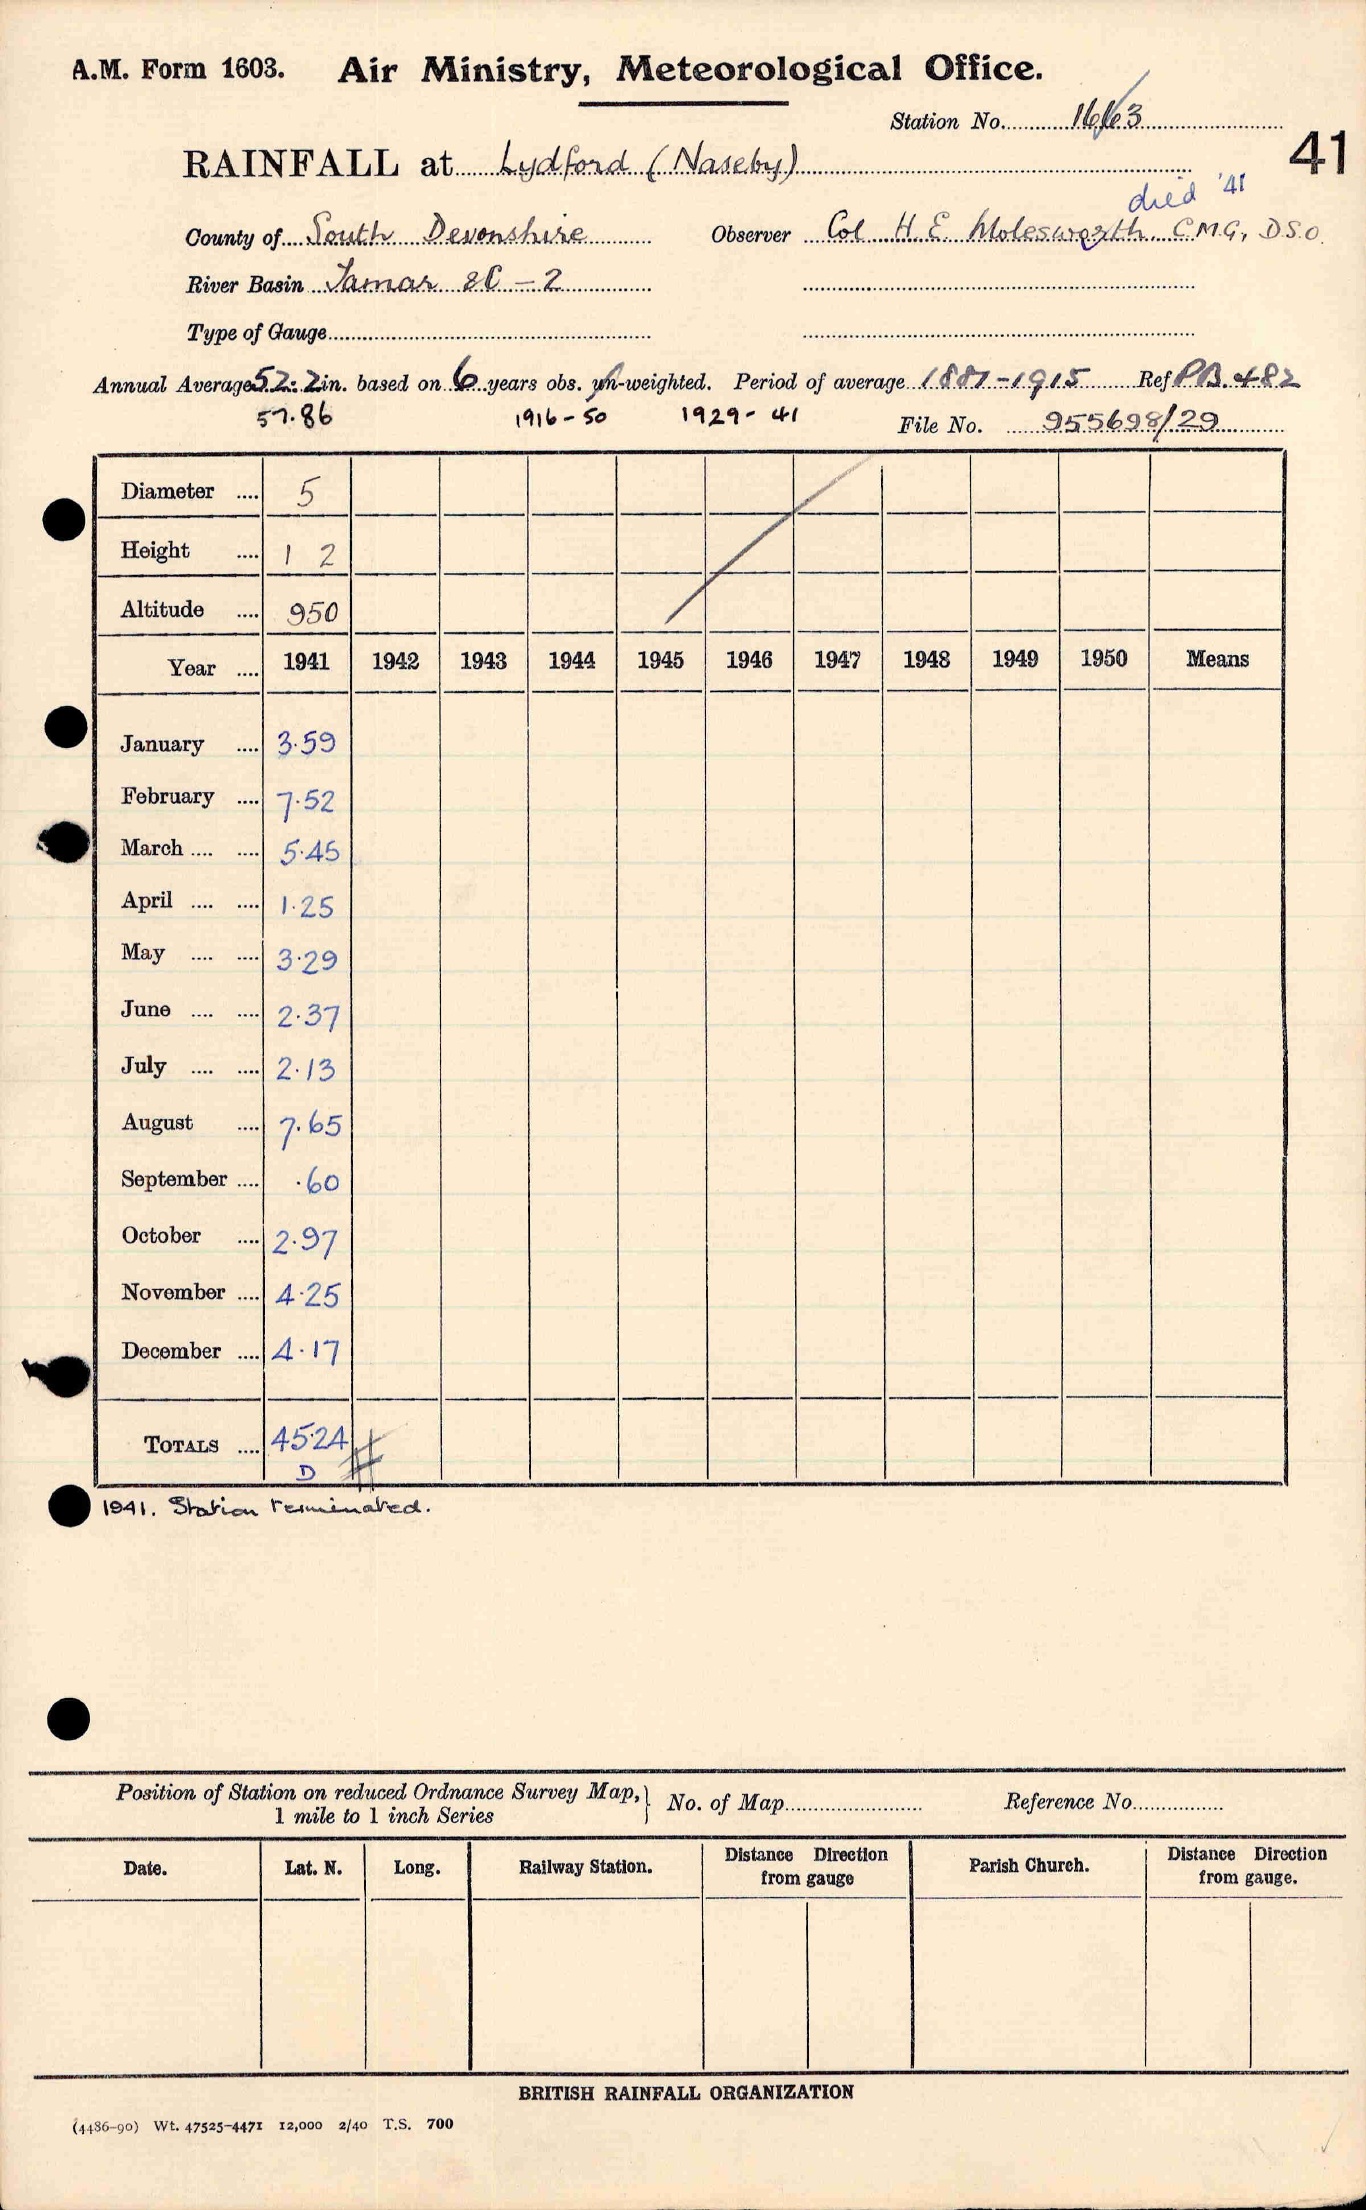 A.M. Form 1603. Air Ministry, Meteorological Office.
Station No. 1663
41
RAINFALL at Lydford (Naseby)
died '41
County of South Devonshire Observer Col H. E. Molesworth C.M.G., D.S.O.
River Basin Tamar 8C - 2
Type of Gauge
Annual Average 52.2 in. based on 6 years obs. un-weighted. Period of average 1881-1915 Ref PB. 482
57.86 1916-50 1929-41
File No. 955698/29
Diameter .... 5
Height .... 1 2
Altitude .... 950
Year .... 1941 1942 1943 1944 1945 1946 1947 1948 1949 1950 Means
January .... 3.59
February .... 7.52
March .... .... 5.45
April .... .... 1.25
May .... .... 3.29
June .... .... 2.37
July .... .... 2.13
August .... 7.65
September .... .60
October .... 2.97
November .... 4.25
December .... 4.17
TOTALS .... 45.24
D
1941. Station terminated.
Position of Station on reduced Ordnance Survey Map,
1 mile to 1 inch Series
No. of Map Reference No.
Date. Lat. N. Long. Railway Station. Distance from gauge Direction Parish Church. Distance from gauge. Direction
BRITISH RAINFALL ORGANIZATION
(4486-90) Wt. 47525-4471 12,000 2/40 T.S. 700